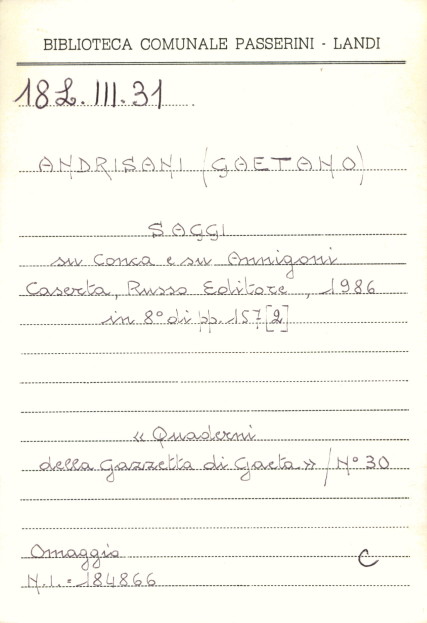 BIBLIOTECA COMUNALE PASSERINI - LANDI
18L.III.31
ANDRISANI (GAETANO)
SAGGI
su Conca e su Annigoni
Caserta, Russo Editore, 1986
in 8° di pp. 157[2]
« Quaderni
della Gazzetta di Gaeta » / N° 30
Omaggio
C
N.I. = 184866